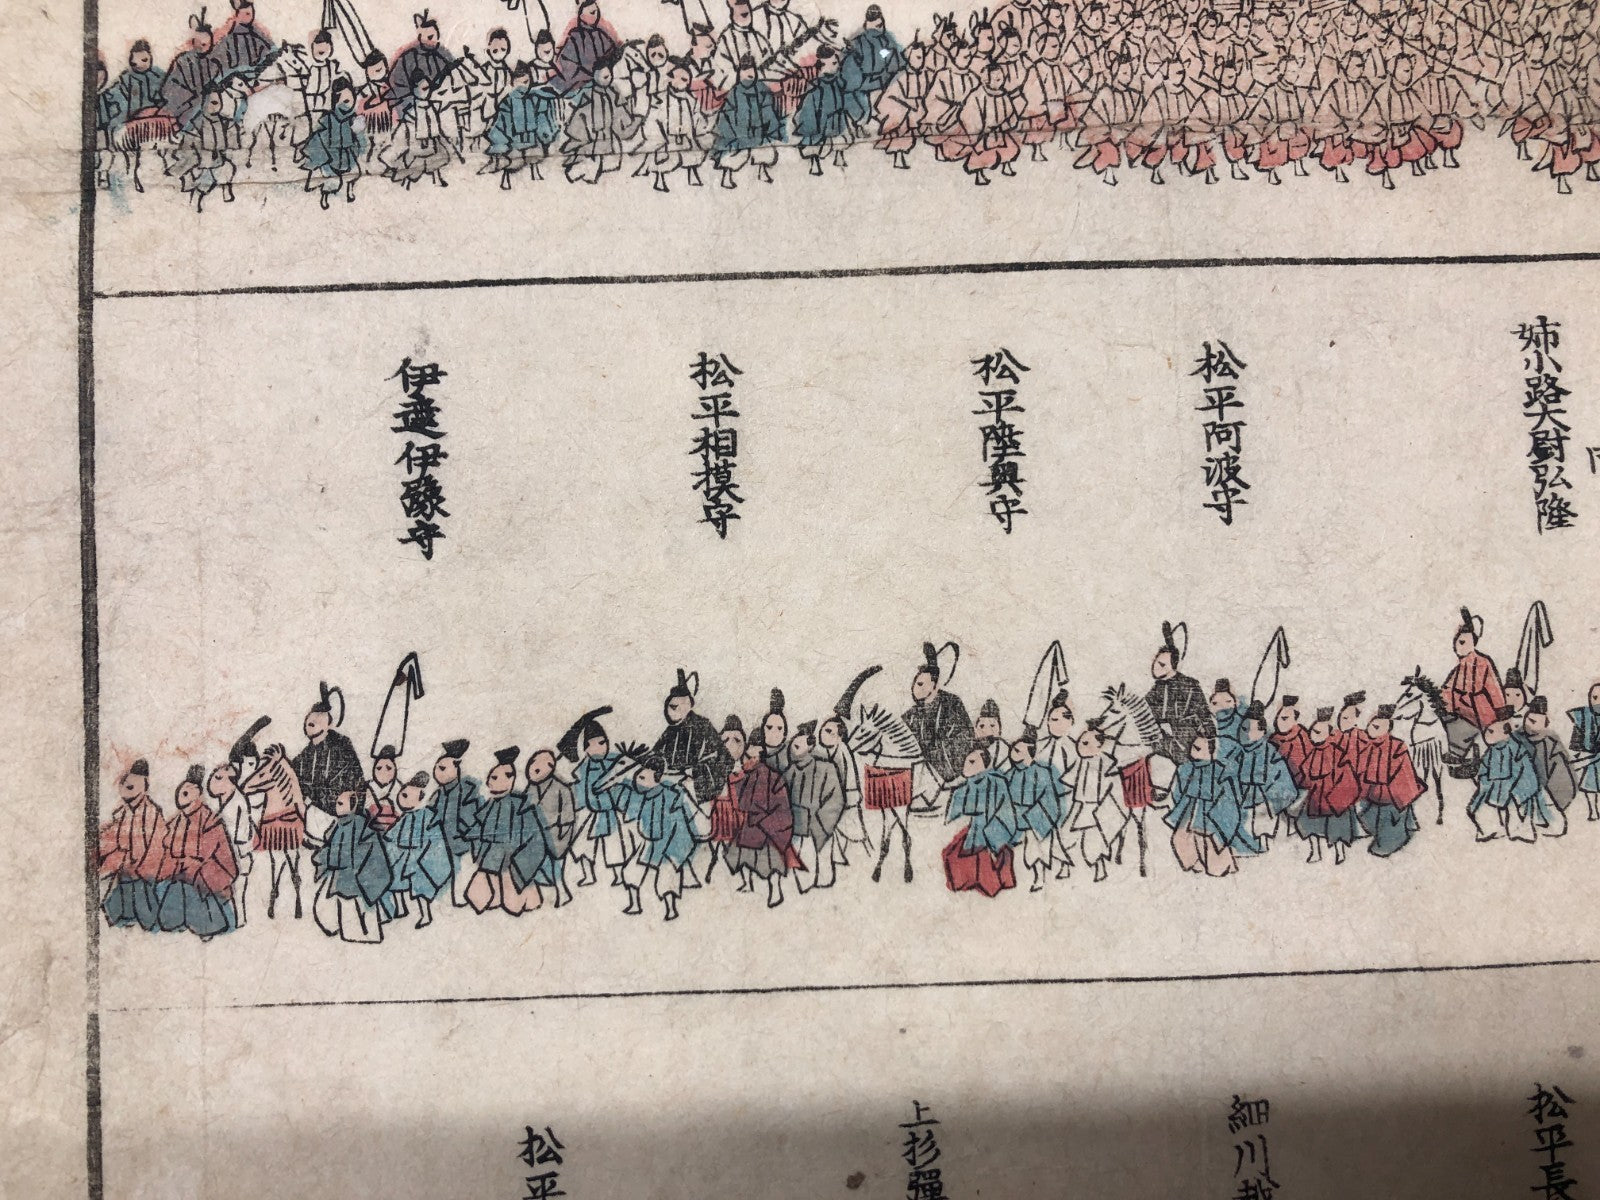 姉小路大尉弘隆
松平阿波守
松平陸奥守
松平相摸守
伊達伊豫守
松平長
細川越
上杉彈
松平